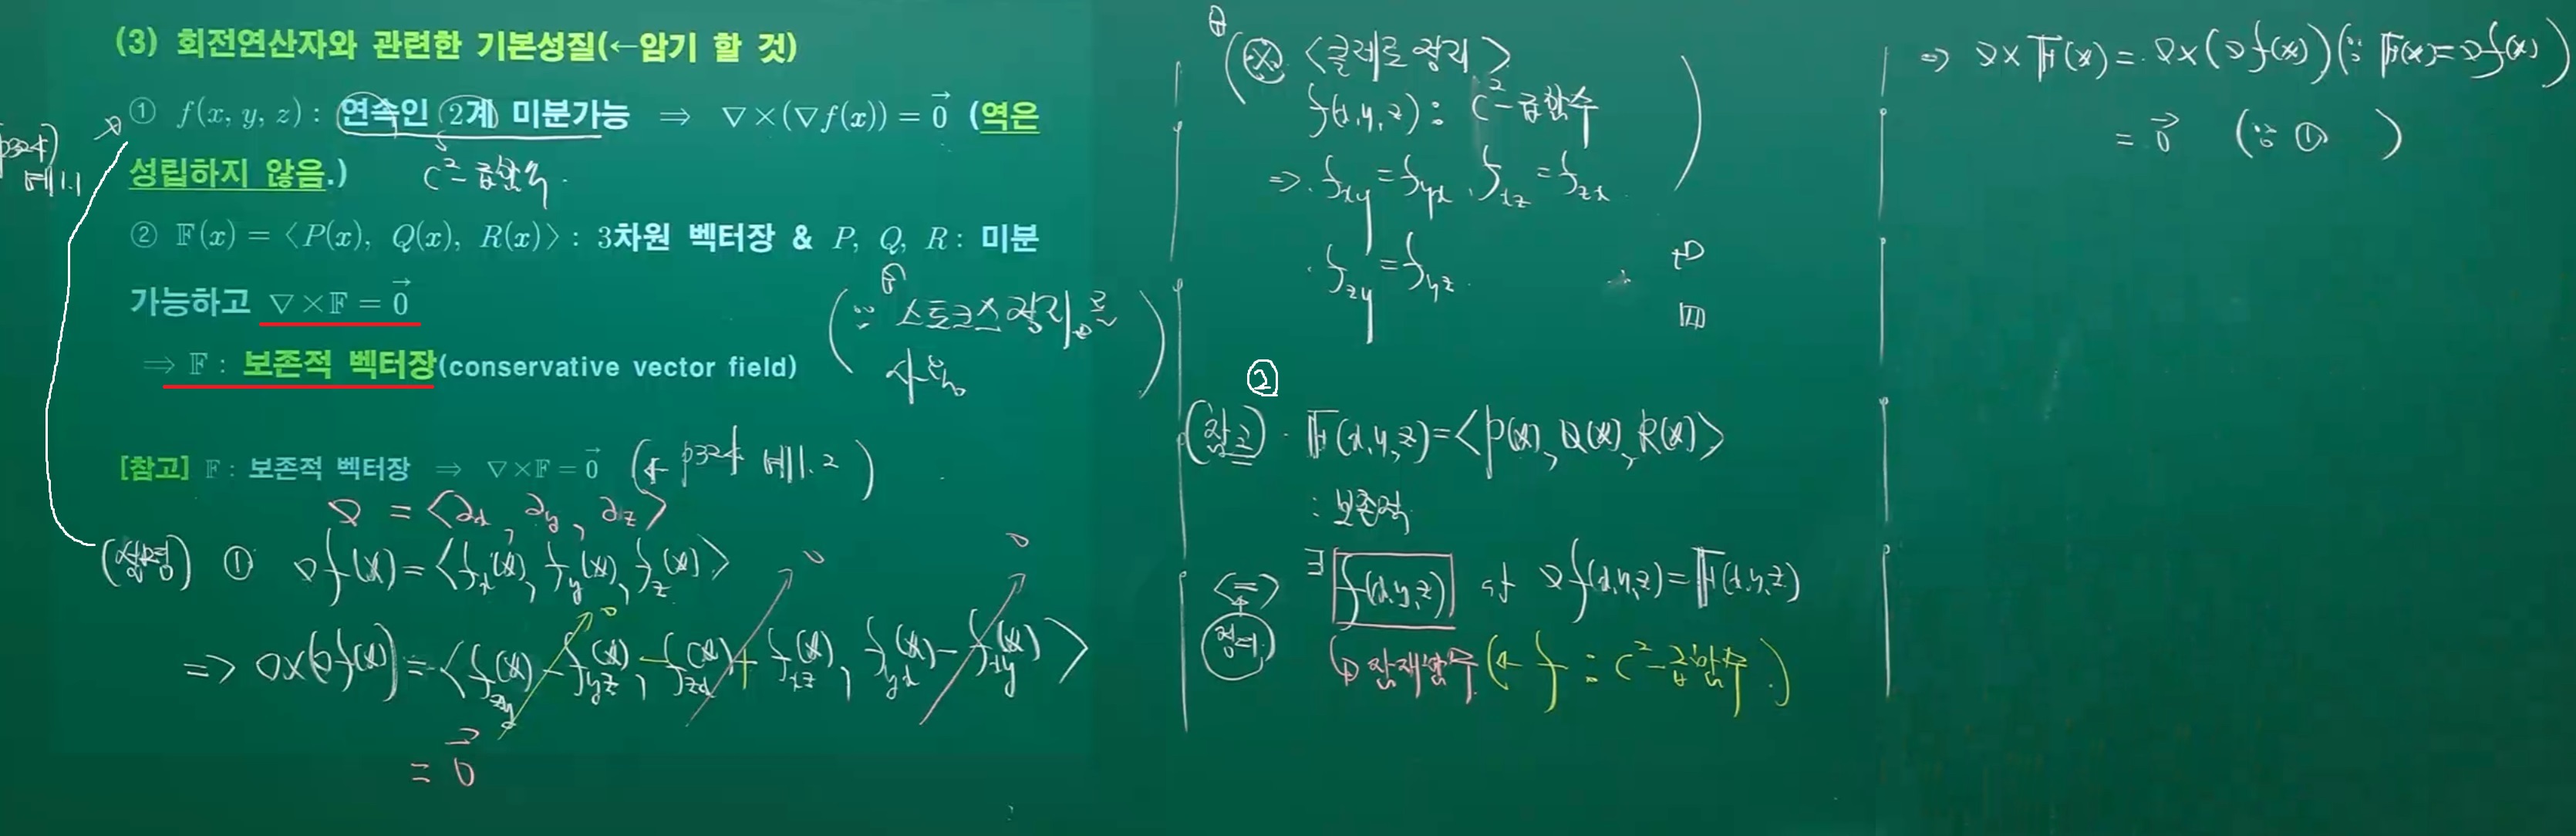 (3) 회전연산자와 관련한 기본성질(←암기 할 것)
① f(x, y, z) : 연속인 2계 미분가능 ⇒ ∇×(∇f(x)) = 0⃗ (역은
성립하지 않음.)
C²-급함수.
p324) 예1.1
② 𝔽(x) = ⟨P(x), Q(x), R(x)⟩ : 3차원 벡터장 & P, Q, R : 미분
가능하고 ∇×𝔽 = 0⃗
⇒ 𝔽 : 보존적 벡터장(conservative vector field)
(∵ 스토크스 정리를
사용)
[참고] 𝔽 : 보존적 벡터장 ⇒ ∇×𝔽 = 0⃗ (← p324 예1.2)
∇ = ⟨∂x, ∂y, ∂z⟩
(설명) ① ∇f(x) = ⟨f_x(x), f_y(x), f_z(x)⟩
⇒ ∇×(∇f(x)) = ⟨f_zy(x) - f_yz(x), -f_zx(x) + f_xz(x), f_yx(x) - f_xy(x)⟩
0 0 0
= 0⃗
(※) <클레로 정리>
f(x,y,z) : C²-급함수
⇒ f_xy = f_yx, f_xz = f_zx
f_zy = f_yz
②
(참고) 𝔽(x,y,z) = ⟨P(x), Q(x), R(x)⟩
: 보존적
⇔ ∃ f(x,y,z) st ∇f(x,y,z) = 𝔽(x,y,z)
정의
잠재함수 (← f : C²-급함수.)
⇒ ∇×𝔽(x) = ∇×(∇f(x)) (∵ 𝔽(x) = ∇f(x))
= 0⃗ (∵ ①)